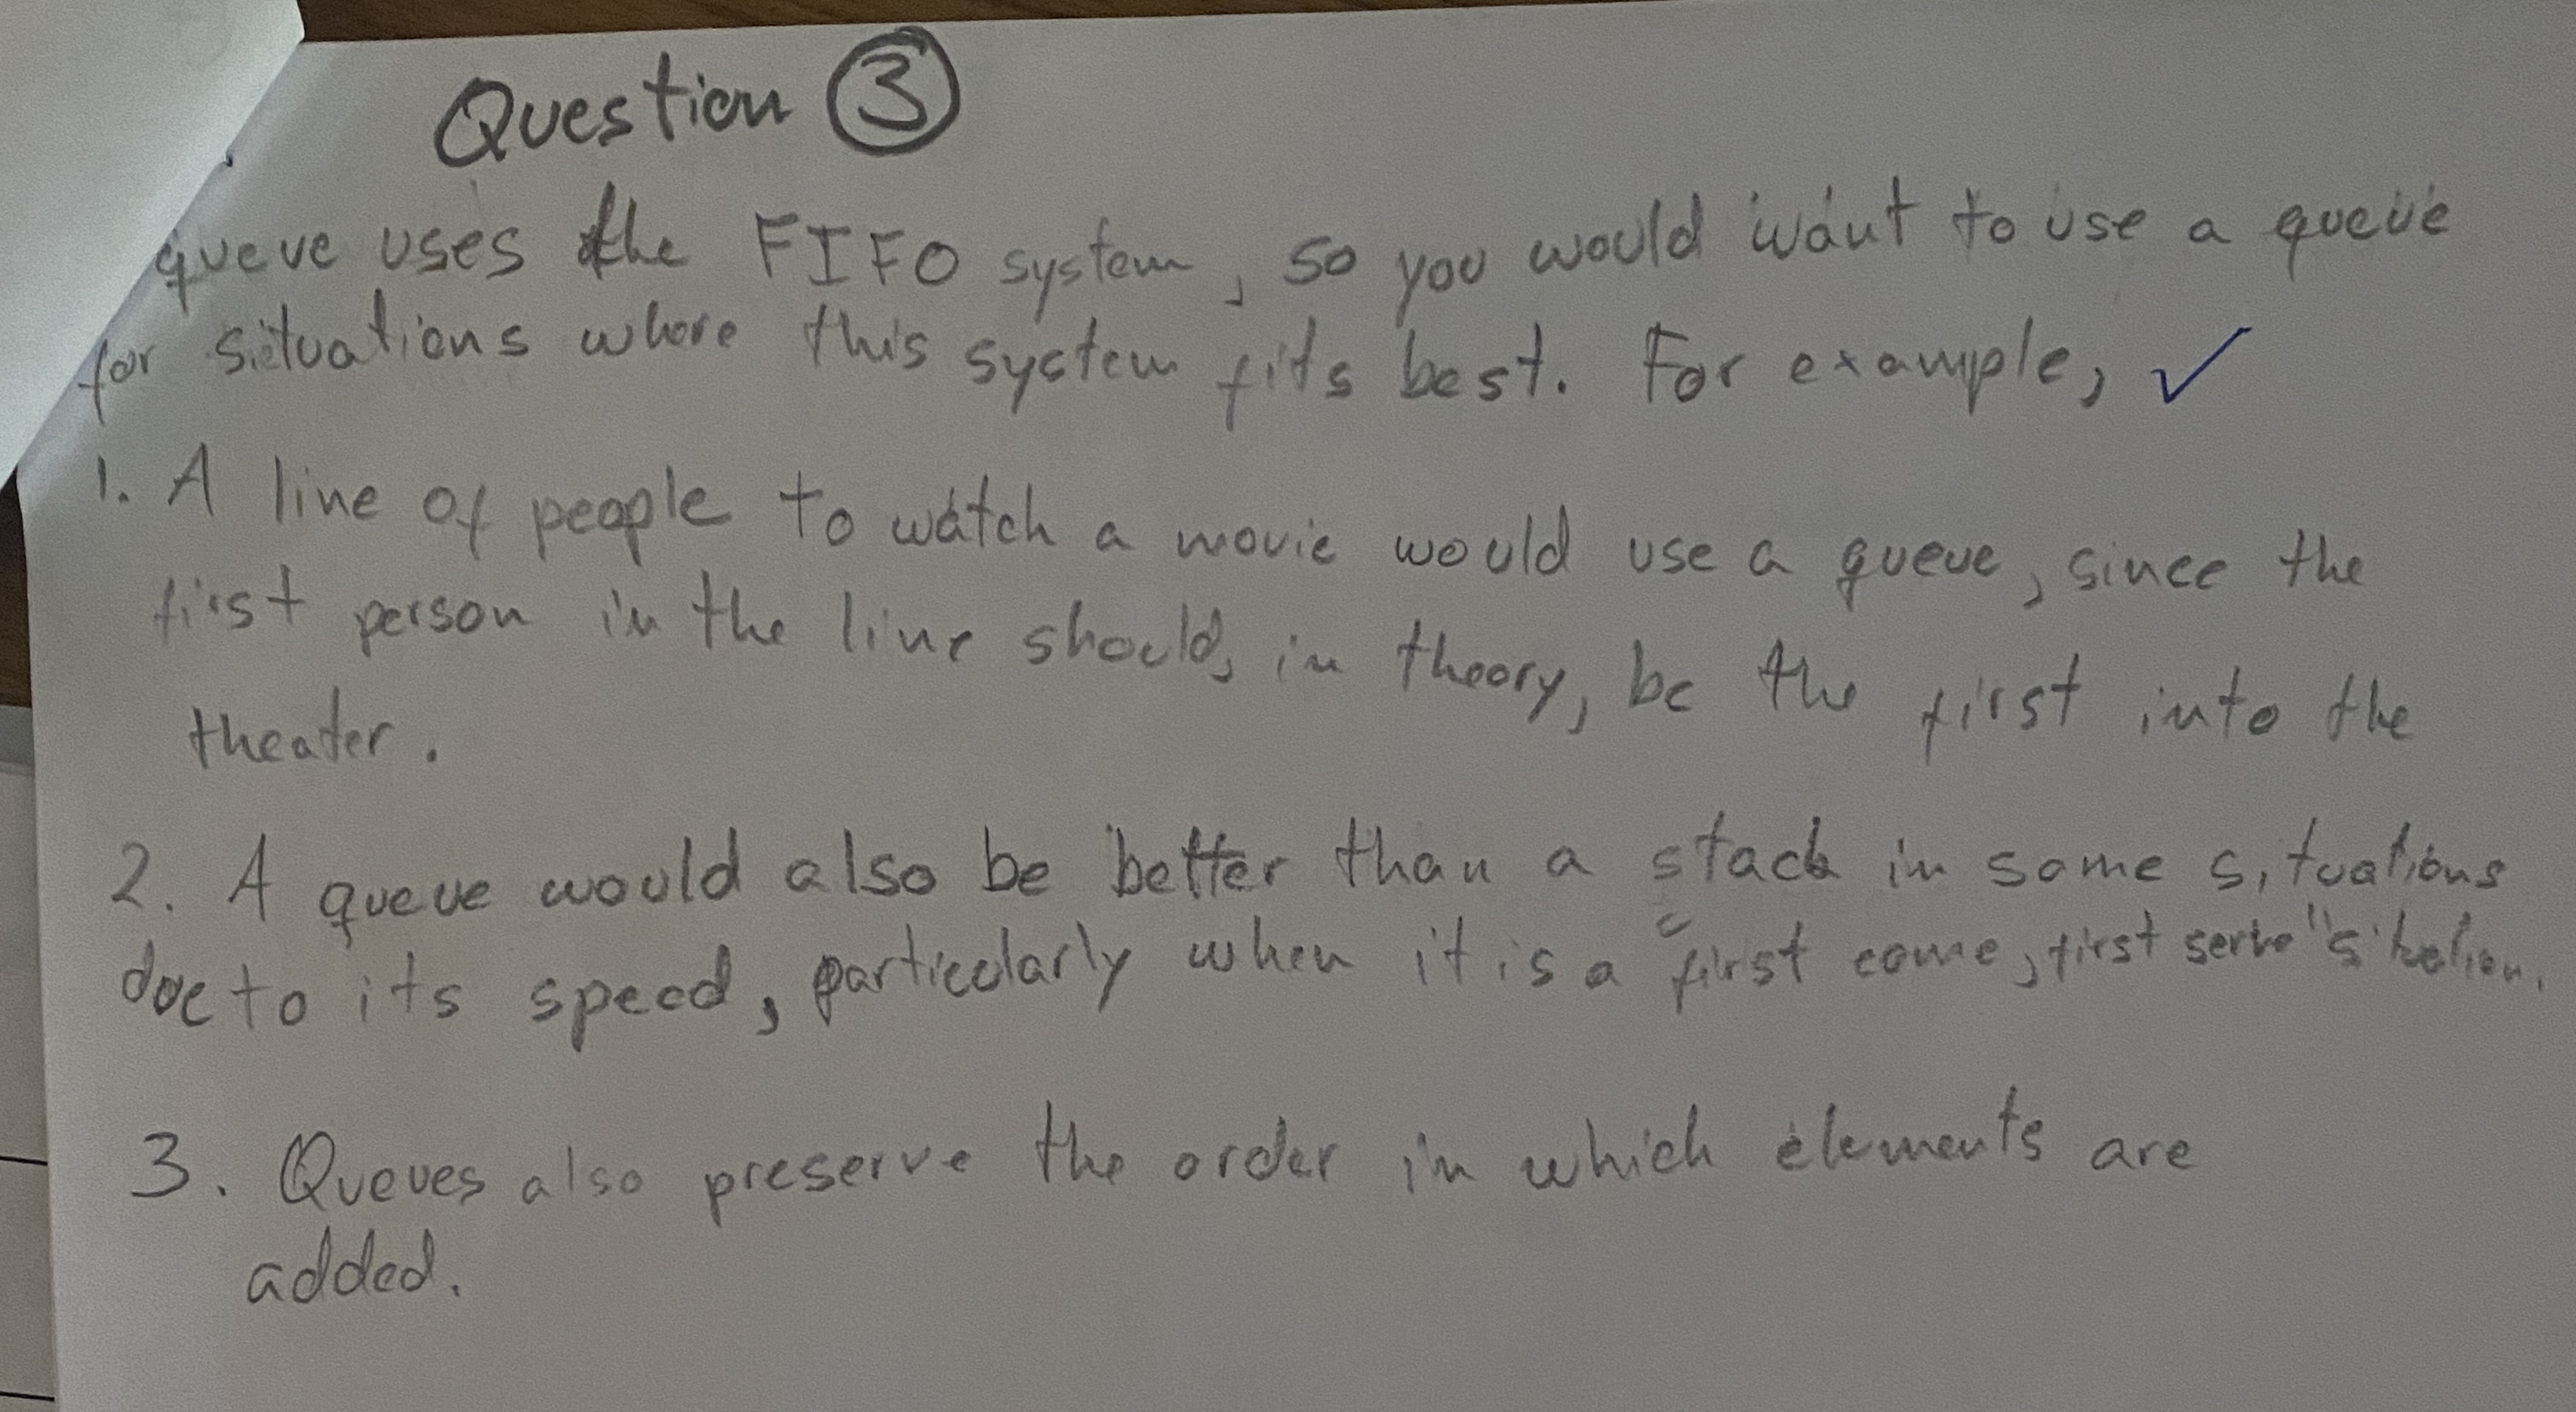 Question 3
queue uses the FIFO system, so you would want to use a queue
for situations where this system fits best. For example, ✓
1. A line of people to watch a movie would use a queue, since the
first person in the line should, in theory, be the first into the
theater.
2. A queue would also be better than a stack in some situations
due to its speed, particularly when it is a "first come, first serve"
3. Queues also preserve the order in which elements are
added.